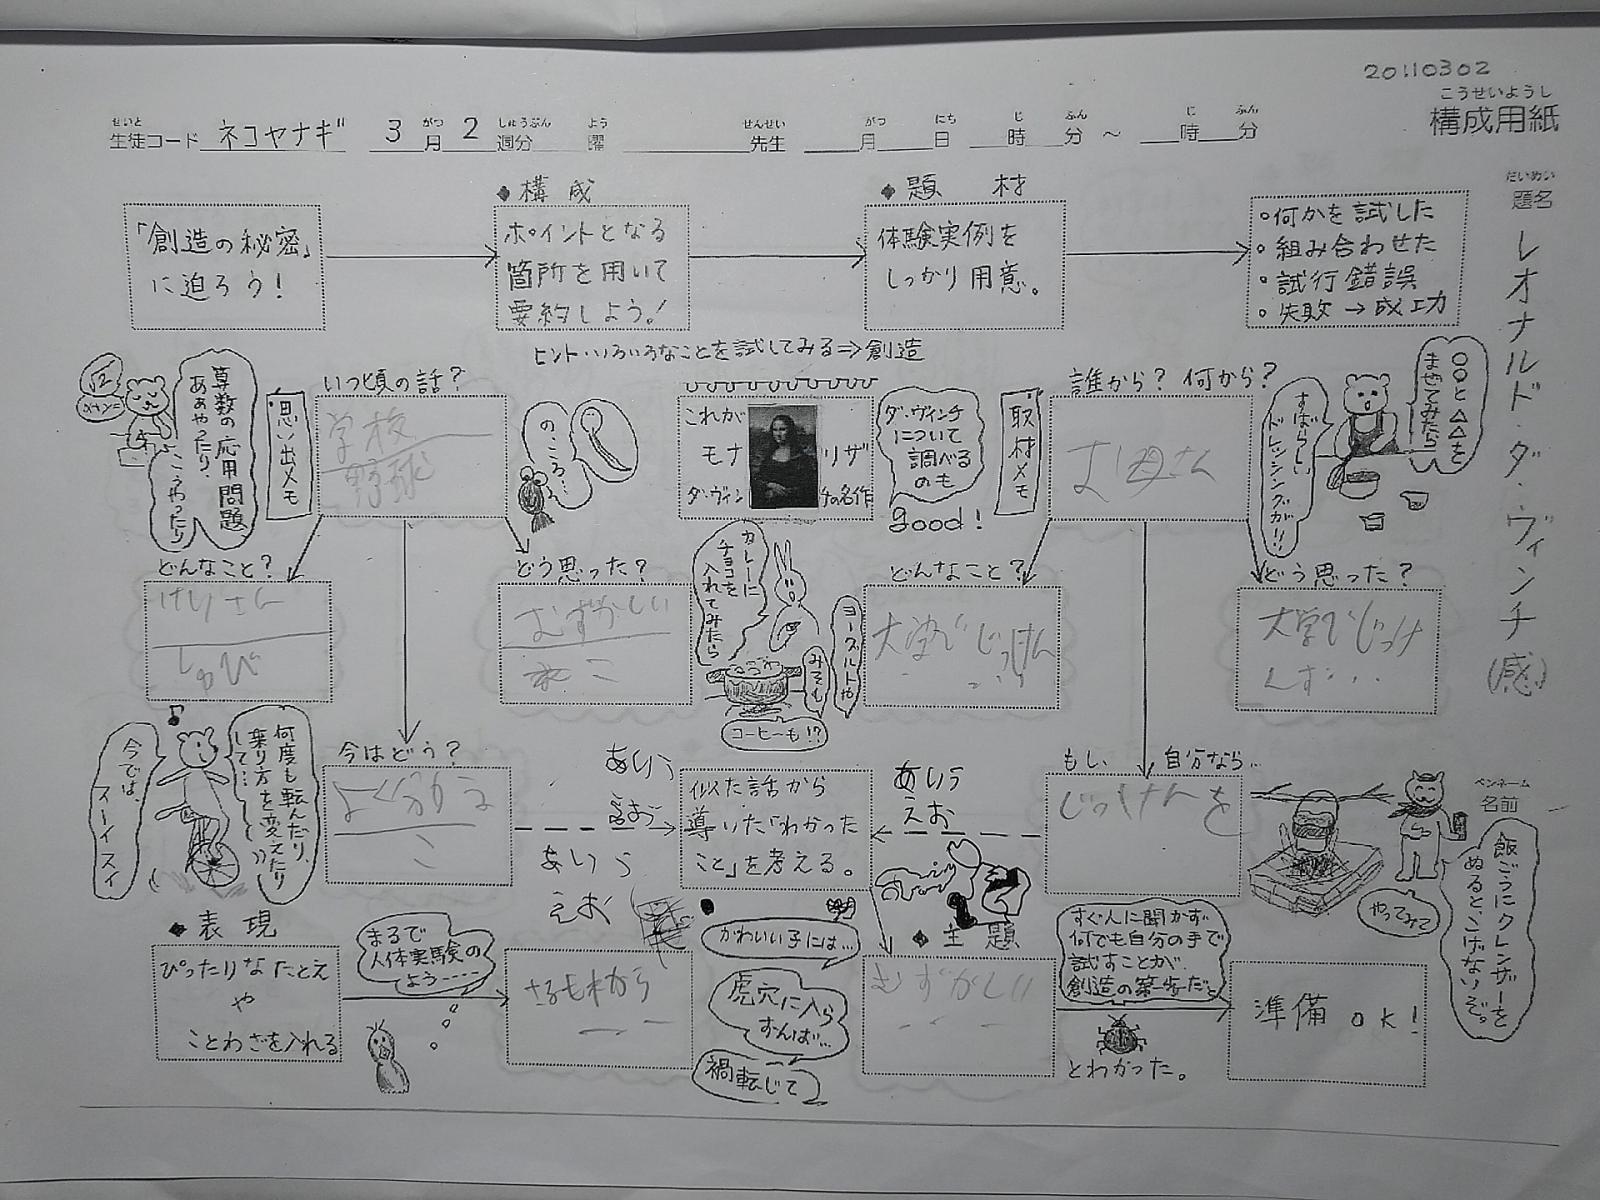 20110302
こうせいようし
構成用紙
せいと がつ しゅうぶん よう せんせい がつ にち じ ふん じ ふん
生徒コード ネコヤナギ 3月 2週分 曜 先生 月 日 時 分 ～ 時 分
だいめい
題名
レオナルド・ダ・ヴィンチ(感)
「創造の秘密」
に迫ろう!
◆構成
ポイントとなる
箇所を用いて
要約しよう!
◆題材
体験実例を
しっかり用意。
・何かを試した
・組み合わせた
・試行錯誤
・失敗→成功
ヒント・いろいろなことを試してみる⇒創造
算数の応用問題
ああやったり、
こうやったり
思い出メモ
いつ頃の話?
学校
野球
の、ころ…
これが
モナ リザ
ダ・ヴィンチの名作
ダ・ヴィンチ
について
調べる
のも
good!
取材メモ
誰から? 何から?
お母さん
すばらしい
ドレッシングが!!
〇〇と△△を
まぜてみたら
どんなこと?
けいさん
しゅび
どう思った?
むずかしい
カレーに
チョコを
入れてみたら
ヨーグルトや
みそも
コーヒーも!?
どんなこと?
大学でじっけん
どう思った?
大学でじっけ
んす…
何度も転んだり、
乗り方を変えたり
して…
今では、
スーイスイ
今はどう?
よく分かる
こ
あいう
えお
あいう
えお
似た話から
導いた「わかった
こと」を考える。
あいう
えお
もし、自分なら…
じっけんを
ペンネーム
名前
飯ごうにクレンザーを
ぬると、こげないぞ。
やってみて
◆表現
ぴったりなたとえ
や
ことわざを入れる
まるで
人体実験の
よう----
さるも木から
かわいい子には…
虎穴に入ら
ずんば…
禍転じて
◆主題
むずかしい
すぐ人に聞かず
何でも自分の手で
試すことが、
創造の第一歩だ
とわかった。
準備 ok!